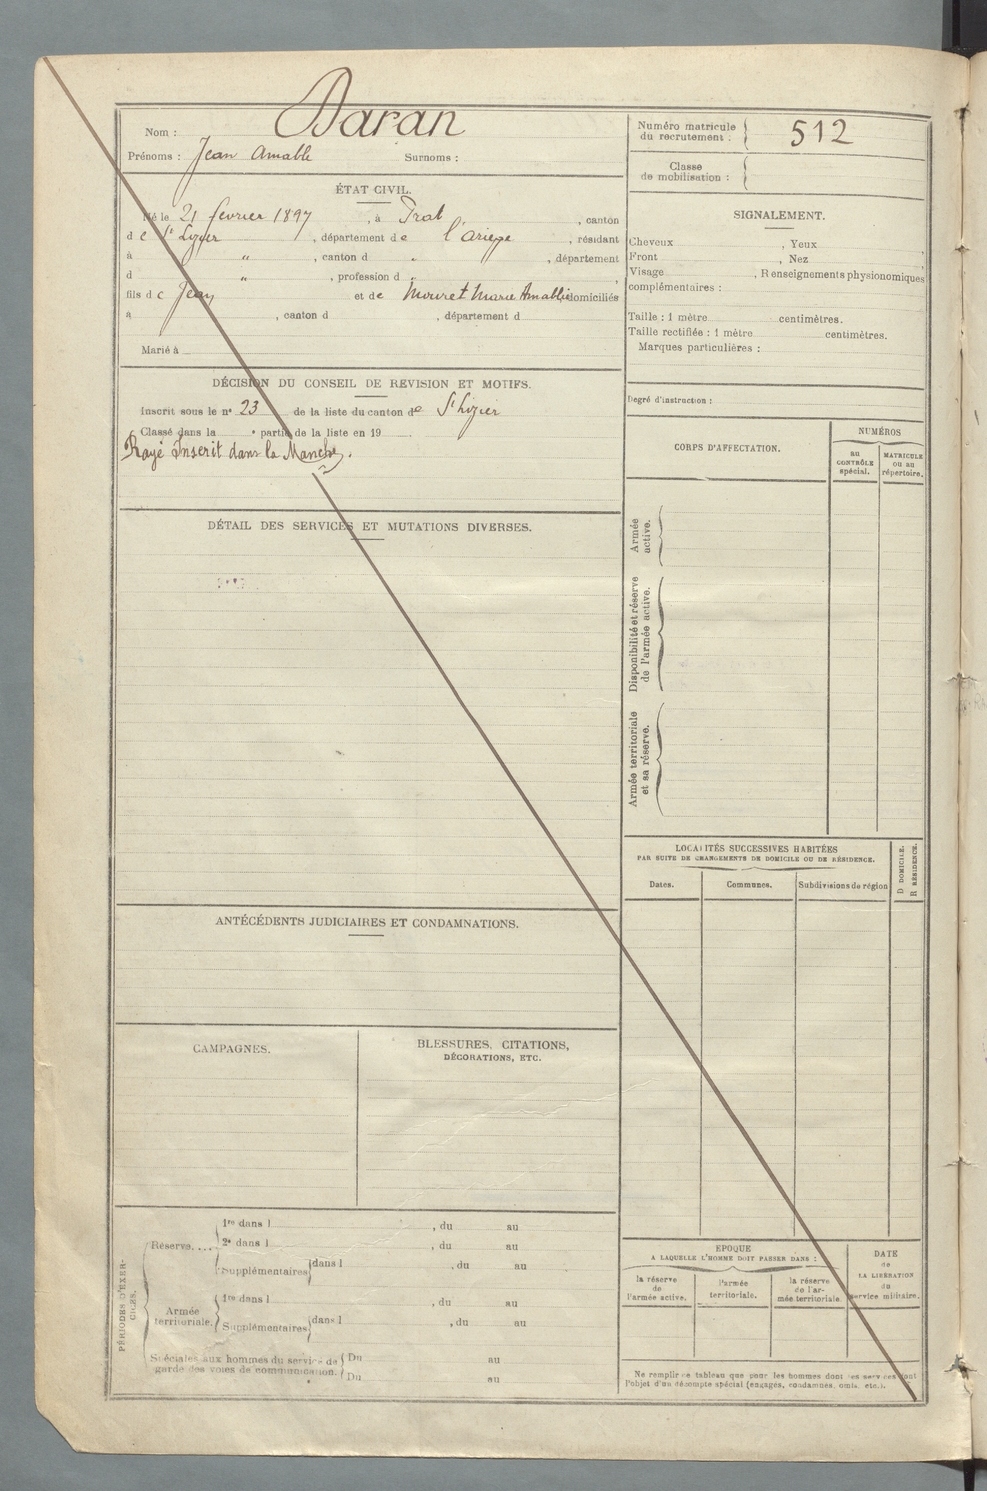 Nom : Daran
Prénoms : Jean Amable Surnoms :
Numéro matricule du recrutement : 512
Classe de mobilisation :
ÉTAT CIVIL.
Né le 21 fevrier 1897, à Prat, canton
de St Lizier, département de l'ariege, résidant
à " , canton d " , département
d " , profession d "
fils de Jean et de Mouret Marie Amable domiciliés
à , canton d , département d
Marié à
SIGNALEMENT.
Cheveux , Yeux ,
Front , Nez ,
Visage , Renseignements physionomiques
complémentaires :
Taille : 1 mètre centimètres.
Taille rectifiée : 1 mètre centimètres.
Marques particulières :
Degré d'instruction :
DÉCISION DU CONSEIL DE REVISION ET MOTIFS.
Inscrit sous le n° 23 de la liste du canton de St Lizier
Classé dans la e partie de la liste en 19
Rayé Inscrit dans la Manche.
CORPS D'AFFECTATION.
NUMÉROS
au CONTRÔLE spécial.
MATRICULE ou au répertoire.
Armée active.
Disponibilité et réserve de l'armée active.
Armée territoriale et sa réserve.
DÉTAIL DES SERVICES ET MUTATIONS DIVERSES.
LOCALITÉS SUCCESSIVES HABITÉES
PAR SUITE DE CHANGEMENTS DE DOMICILE OU DE RÉSIDENCE.
Dates. Communes. Subdivisions de région
D DOMICILE.
R RÉSIDENCE.
ANTÉCÉDENTS JUDICIAIRES ET CONDAMNATIONS.
CAMPAGNES.
BLESSURES, CITATIONS,
DÉCORATIONS, ETC.
PÉRIODES D'EXERCICES.
Réserve....
1re dans l , du au
2e dans l , du au
Supplémentaires dans l , du au
Armée territoriale.
1re dans l , du au
Supplémentaires dans l , du au
Spéciales aux hommes du service de garde des voies de communication.
Du au
Du au
EPOQUE
A LAQUELLE L'HOMME DOIT PASSER DANS :
la réserve de l'armée active.
l'armée territoriale.
la réserve de l'armée territoriale.
DATE de LA LIBÉRATION du service militaire.
Ne remplir ce tableau que pour les hommes dont les services font
l'objet d'un décompte spécial (engagés, condamnés, omis, etc.).